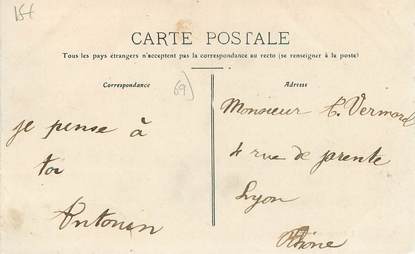 15f
CARTE POSTALE
Tous les pays étrangers n'acceptent pas la correspondance au recto (se renseigner à la poste)
Correspondance
69
Adresse
je pense à
toi
Antonin
Monsieur C. Vermorel
4 rue de jarente
Lyon
Rhône